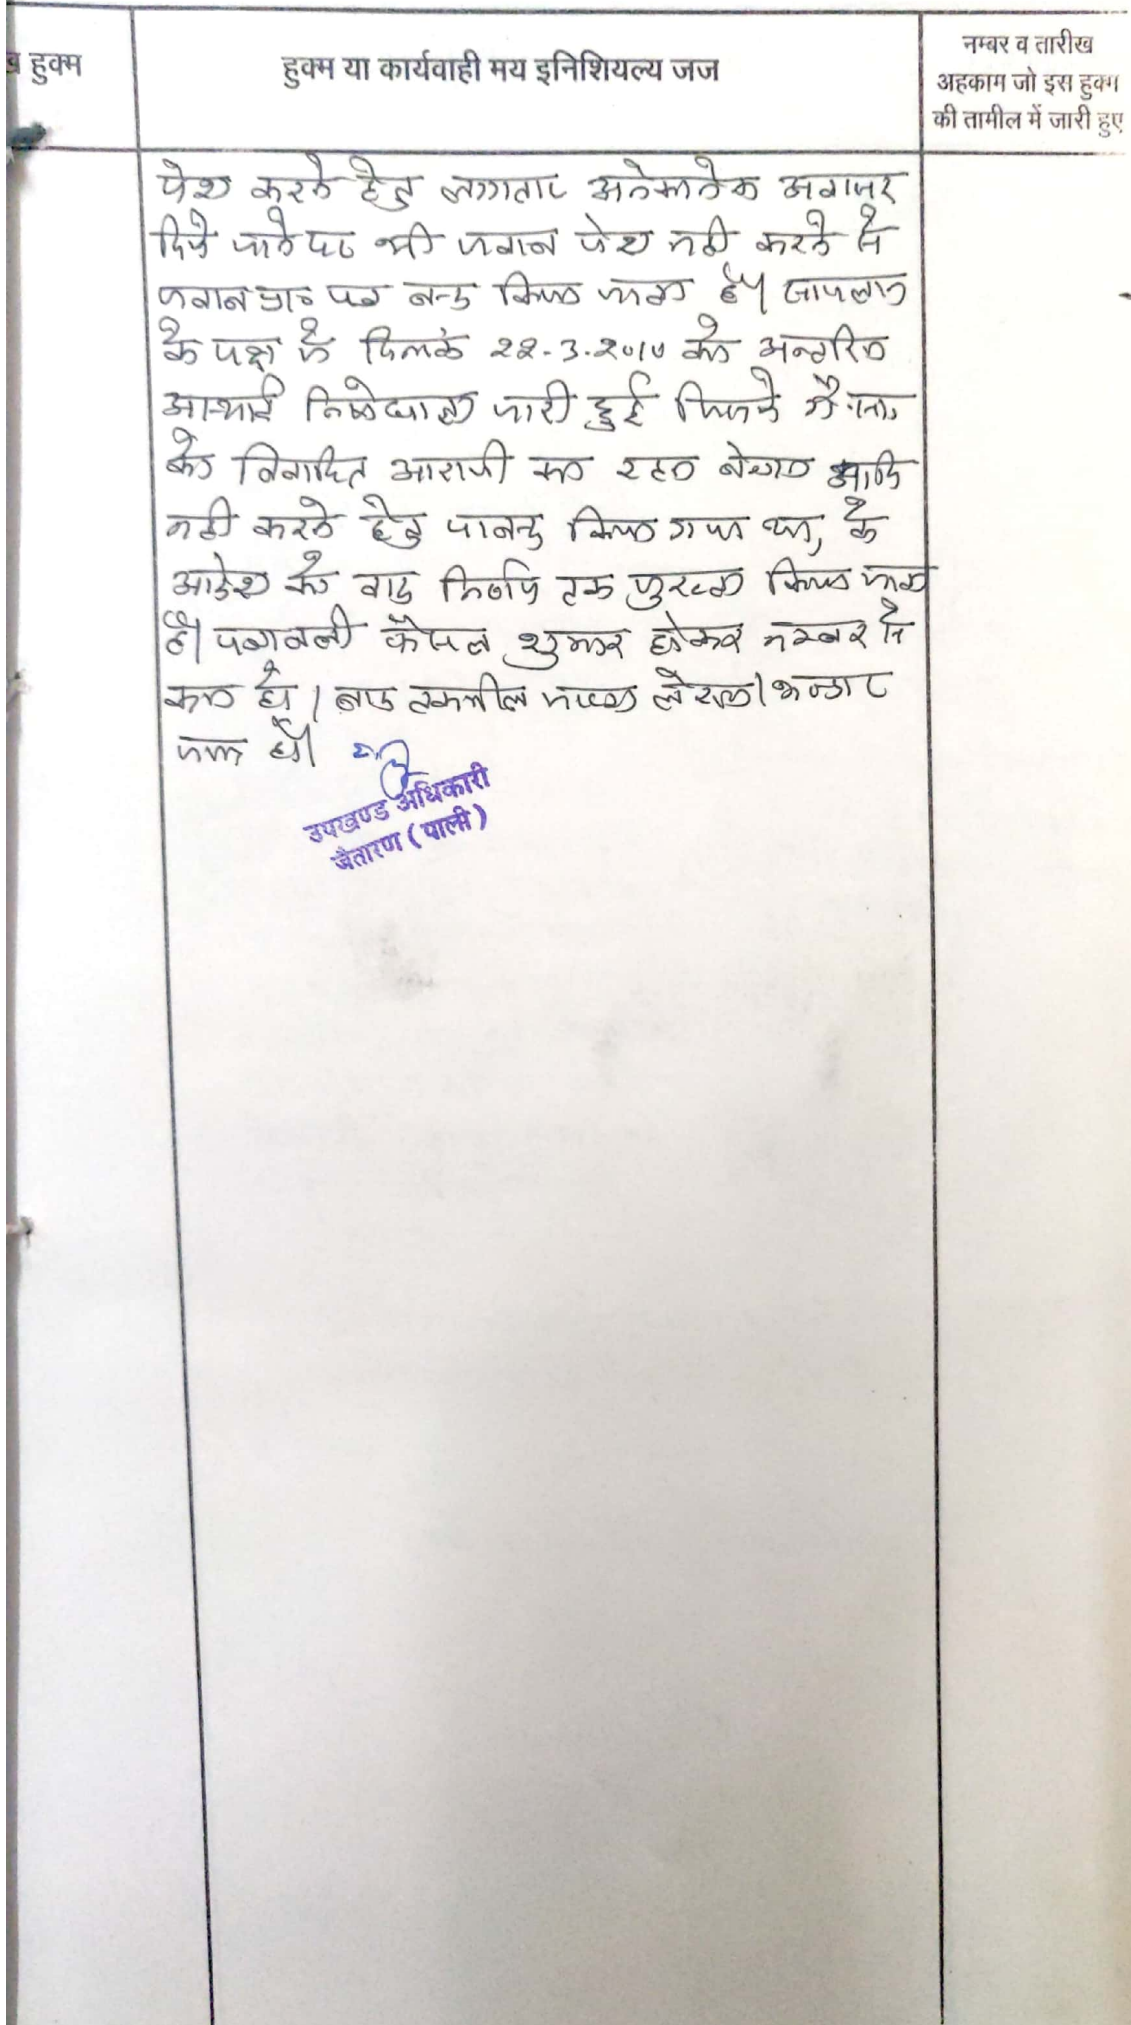 हुक्म
हुक्म या कार्यवाही मय इनिशियल्य जज
नम्बर व तारीख
अहकाम जो इस हुक्म
की तामील में जारी हुए
पेश करने हेतु लगातार अनेकानेक अवसर
दिये जाने पर भी जवाब पेश नही करने से
जवाब प्रा० पत्र बन्द किया जाता है। सायलान
के पक्ष में दिनांक 22-3-2010 को अन्तरिम
अस्थाई निषेधाज्ञा जारी हुई जिसमें गै.सा.
को विवादित आराजी का रहन बेचान आदि
नही करने हेतु पाबन्द किया गया था, के
आदेश को वाद निर्णय तक पुख्ता किया जाता
है। पत्रावली फैसल शुमार होकर नम्बर से
कम हो। बाद तकमील
जमा हो।
उपखण्ड अधिकारी
जैतारण (पाली)